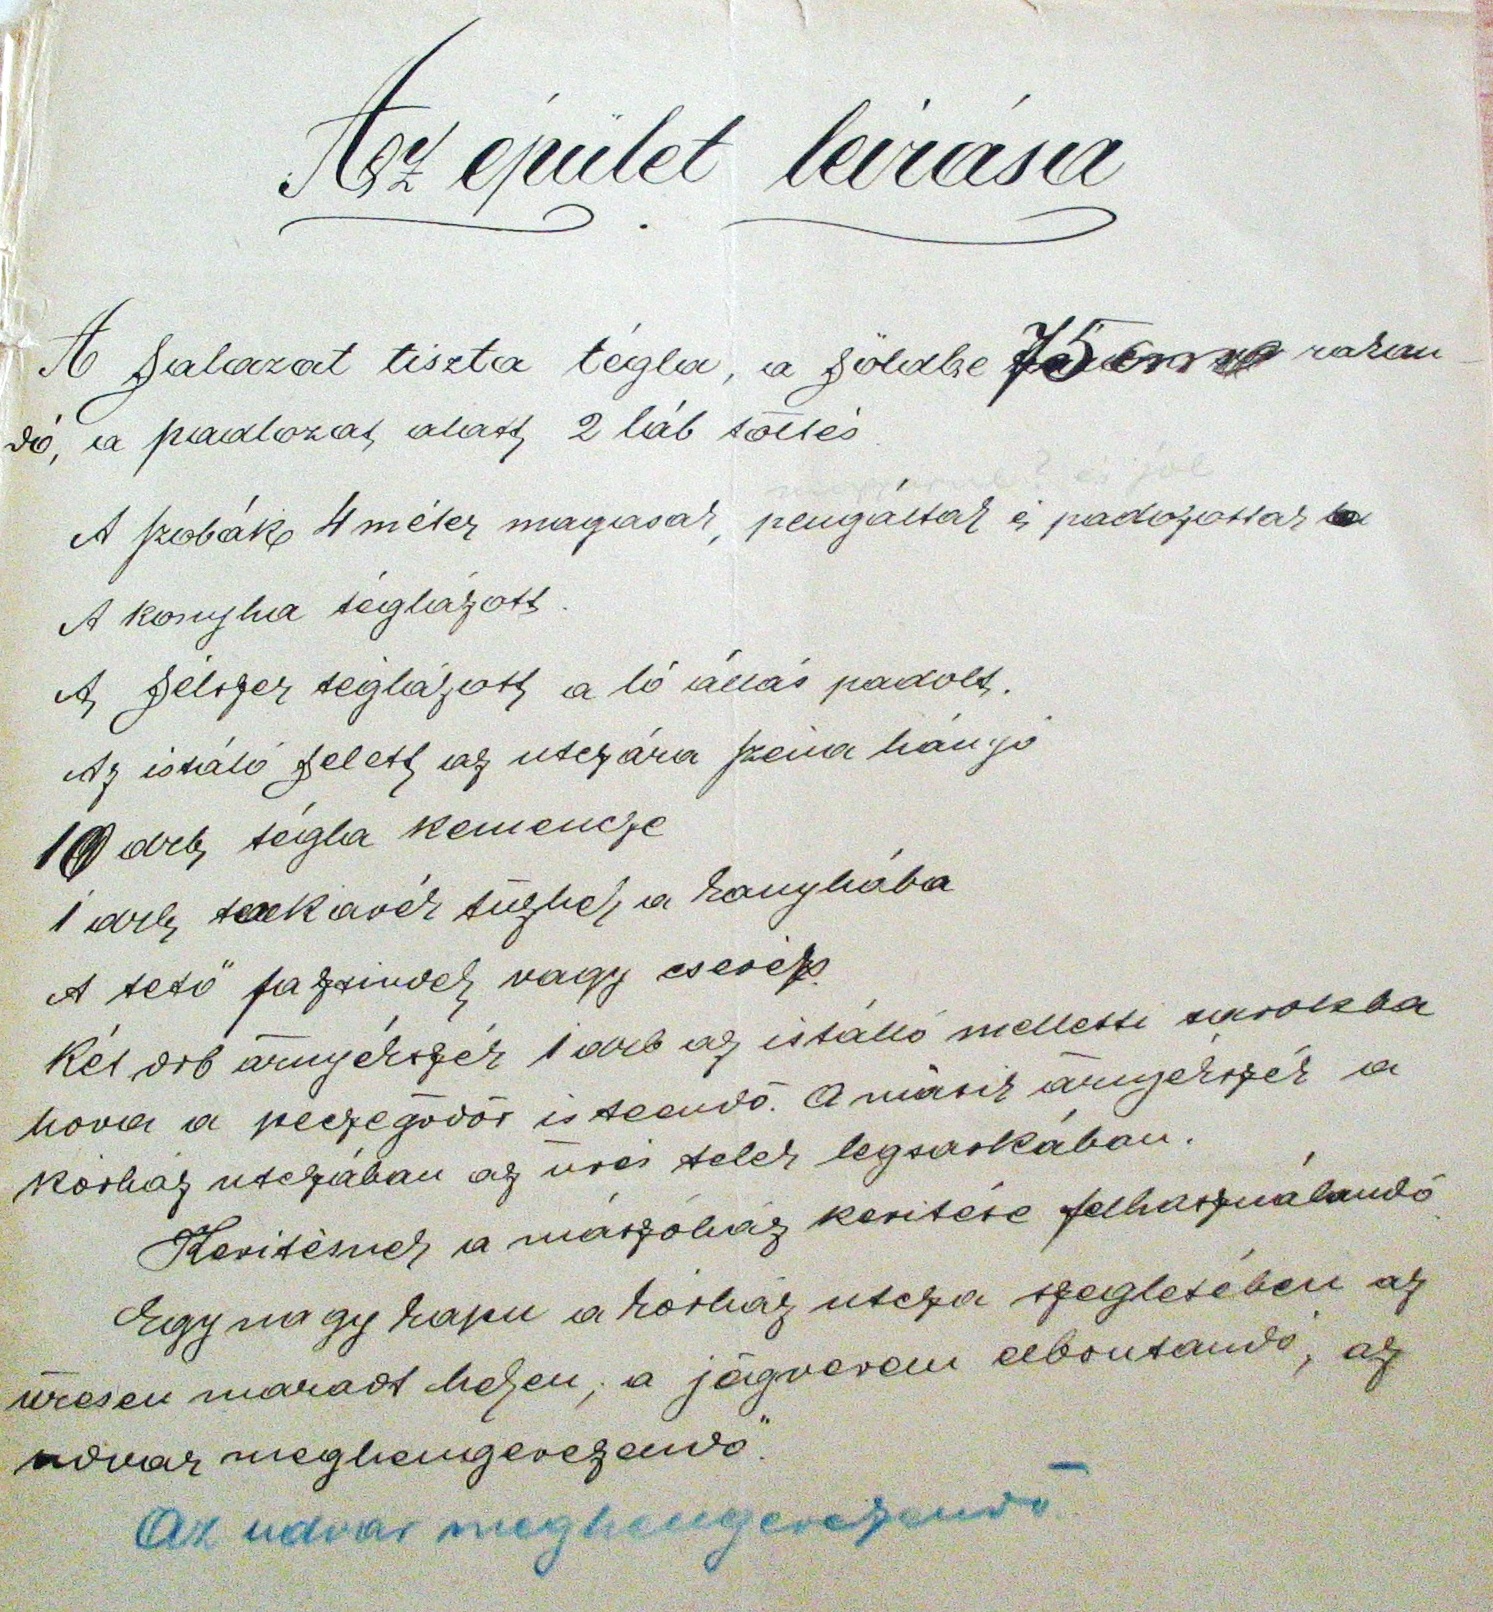 Az épület leirása
A falazat tiszta tégla, a földbe 75 cm rakan
dó, a padlozat alatt 2 láb töltés
és jól
A szobák 4 méter magasak, pengáltak és padozottak
A konyha téglázott.
A félszer téglázott a ló állás padolt.
Az istáló felett az utczára széna hányó
10 drb tégla kemencze
1 drb takarék tüzhely a konyhába
A tető fazsindely vagy cserép.
Két drb árnyékszék 1 drb az istálló melletti sarokba
hova a peczegödör is teendő. A másik árnyékszék a
kórház utczában az üres telek legsarkában.
Keritésnek a mászóház keritése felhasználandó
Egy nagy kapu a kórház utcza szegletében az
üresen maradt helyen, a jégverem elbontandó, az
udvar meghengerezendő.
Az udvar meghengerezendő